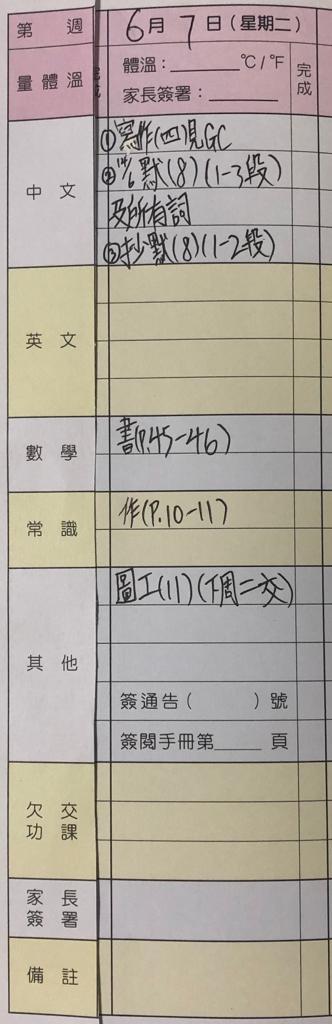 第　週　6月7日(星期二)
量體溫　完成　體溫：______°C/°F　完成
家長簽署：______
中文　①寫作(四)見GC
②10/6默(8)(1-3段)
及所有詞
③抄默(8)(1-2段)
英文
數學　書(P.45-46)
常識　作(P.10-11)
其他　圖工(11)(下周二交)
簽通告(　　)號
簽閱手冊第____頁
欠交功課
家長簽署
備註